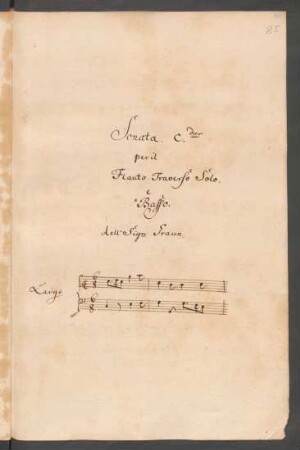 85
Sonata. C. dur
per il
Flauto Traverso Solo.
e
Basso.
dell Sigr Graun
Largo